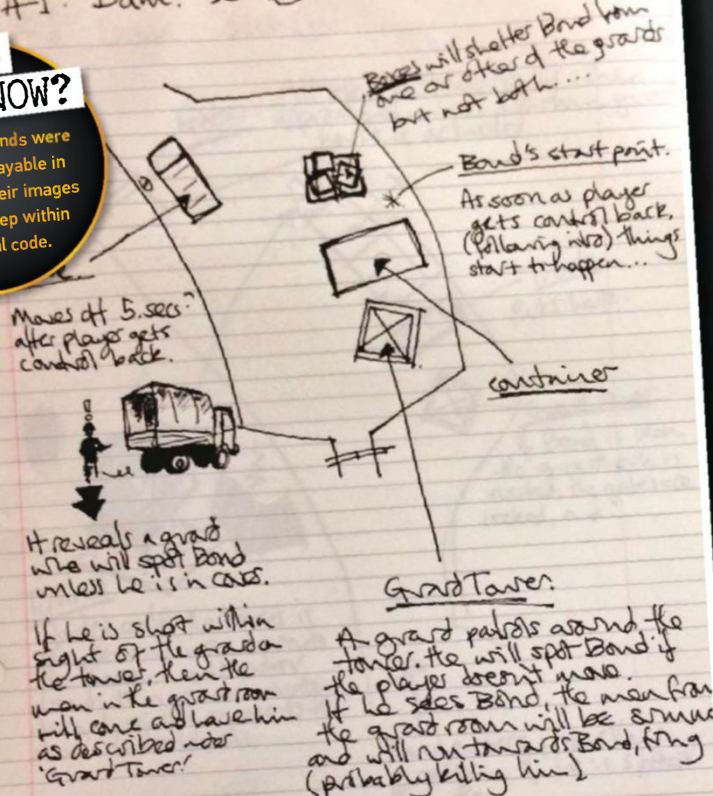 A-1. Dam.
NOW?
nds were
ayable in
eir images
ep within
l code.
Boxes will shelter Bond from
one or other of the guards
but not both....
Bond's start point.
As soon as player
gets control back,
(following intro) things
start to happen...
Moves off 5. secs?
after player gets
control back.
container
It reveals a guard
who will spot Bond
unless he is in cover.
If he is shot within
sight of the guard on
the tower, then the
men in the guardroom
will come and have him
as described under
'Guard Tower'
Guard Tower.
A guard patrols around the
tower. He will spot Bond if
the player doesn't move.
If he sees Bond, the men from
the guardroom will be
and will run towards Bond, firing
(probably killing him)